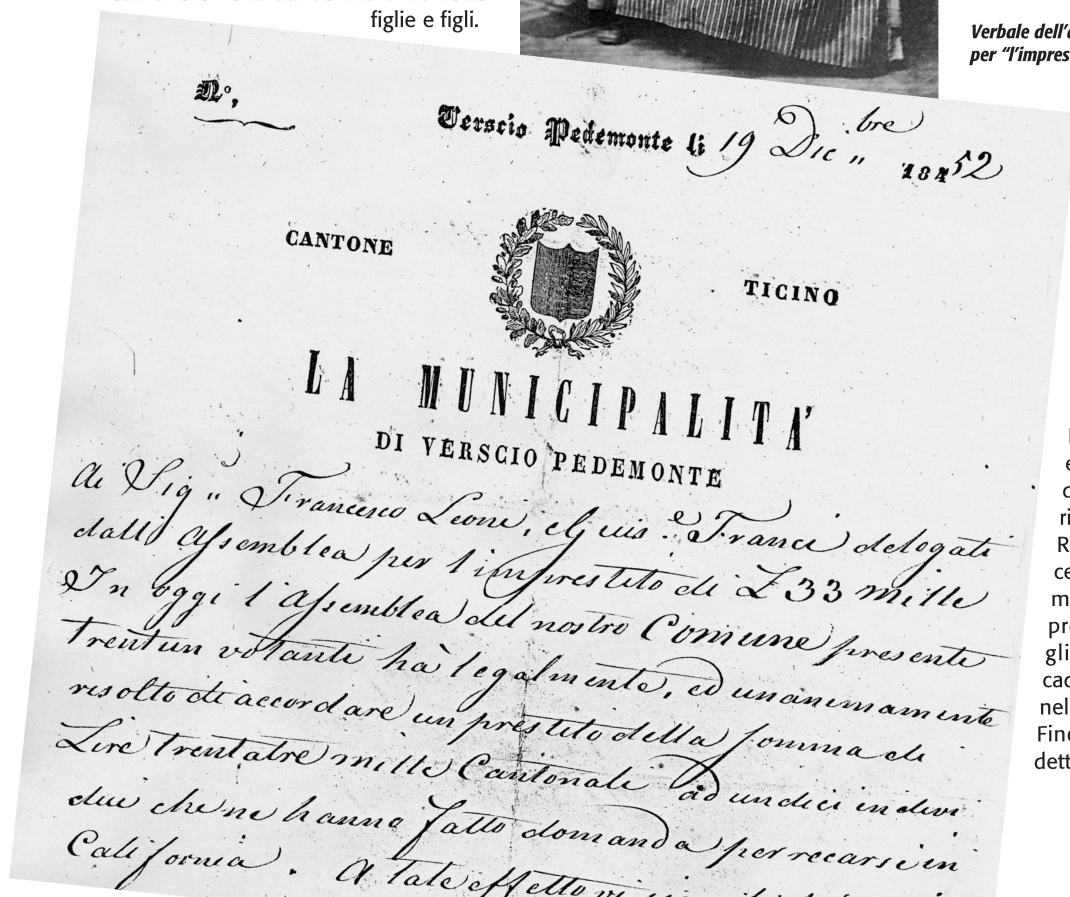 figlie e figli.
Verbale dell'
per "l'impres
N.o,
Verscio Pedemonte li 19 Dic " bre 18452
CANTONE
TICINO
LA MUNICIPALITA'
DI VERSCIO PEDEMONTE
Ai Sig " Francesco Leoni, e Franci delegati
dall Assemblea per l'imprestito di L 33 mille
In oggi l'Assemblea del nostro Comune presenti
trentun votanti hà legalmente, ed unanimamente
risolto di accordare un prestito della somma di
Lire trentatre mille Cantonali ad undici indivi
due che ne hanno fatto domanda per recarsi in
California. A tale effetto
ri
R
ce
m
pr
gli
cac
nel
Fin
dett